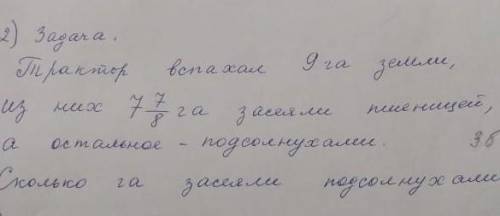 2) Задача.
Трактор вспахал 9 га земли,
из них 7 7/8 га засеяли пшеницей,
а остальное - подсолнухами. 3б
Сколько га засеяли подсолнухами